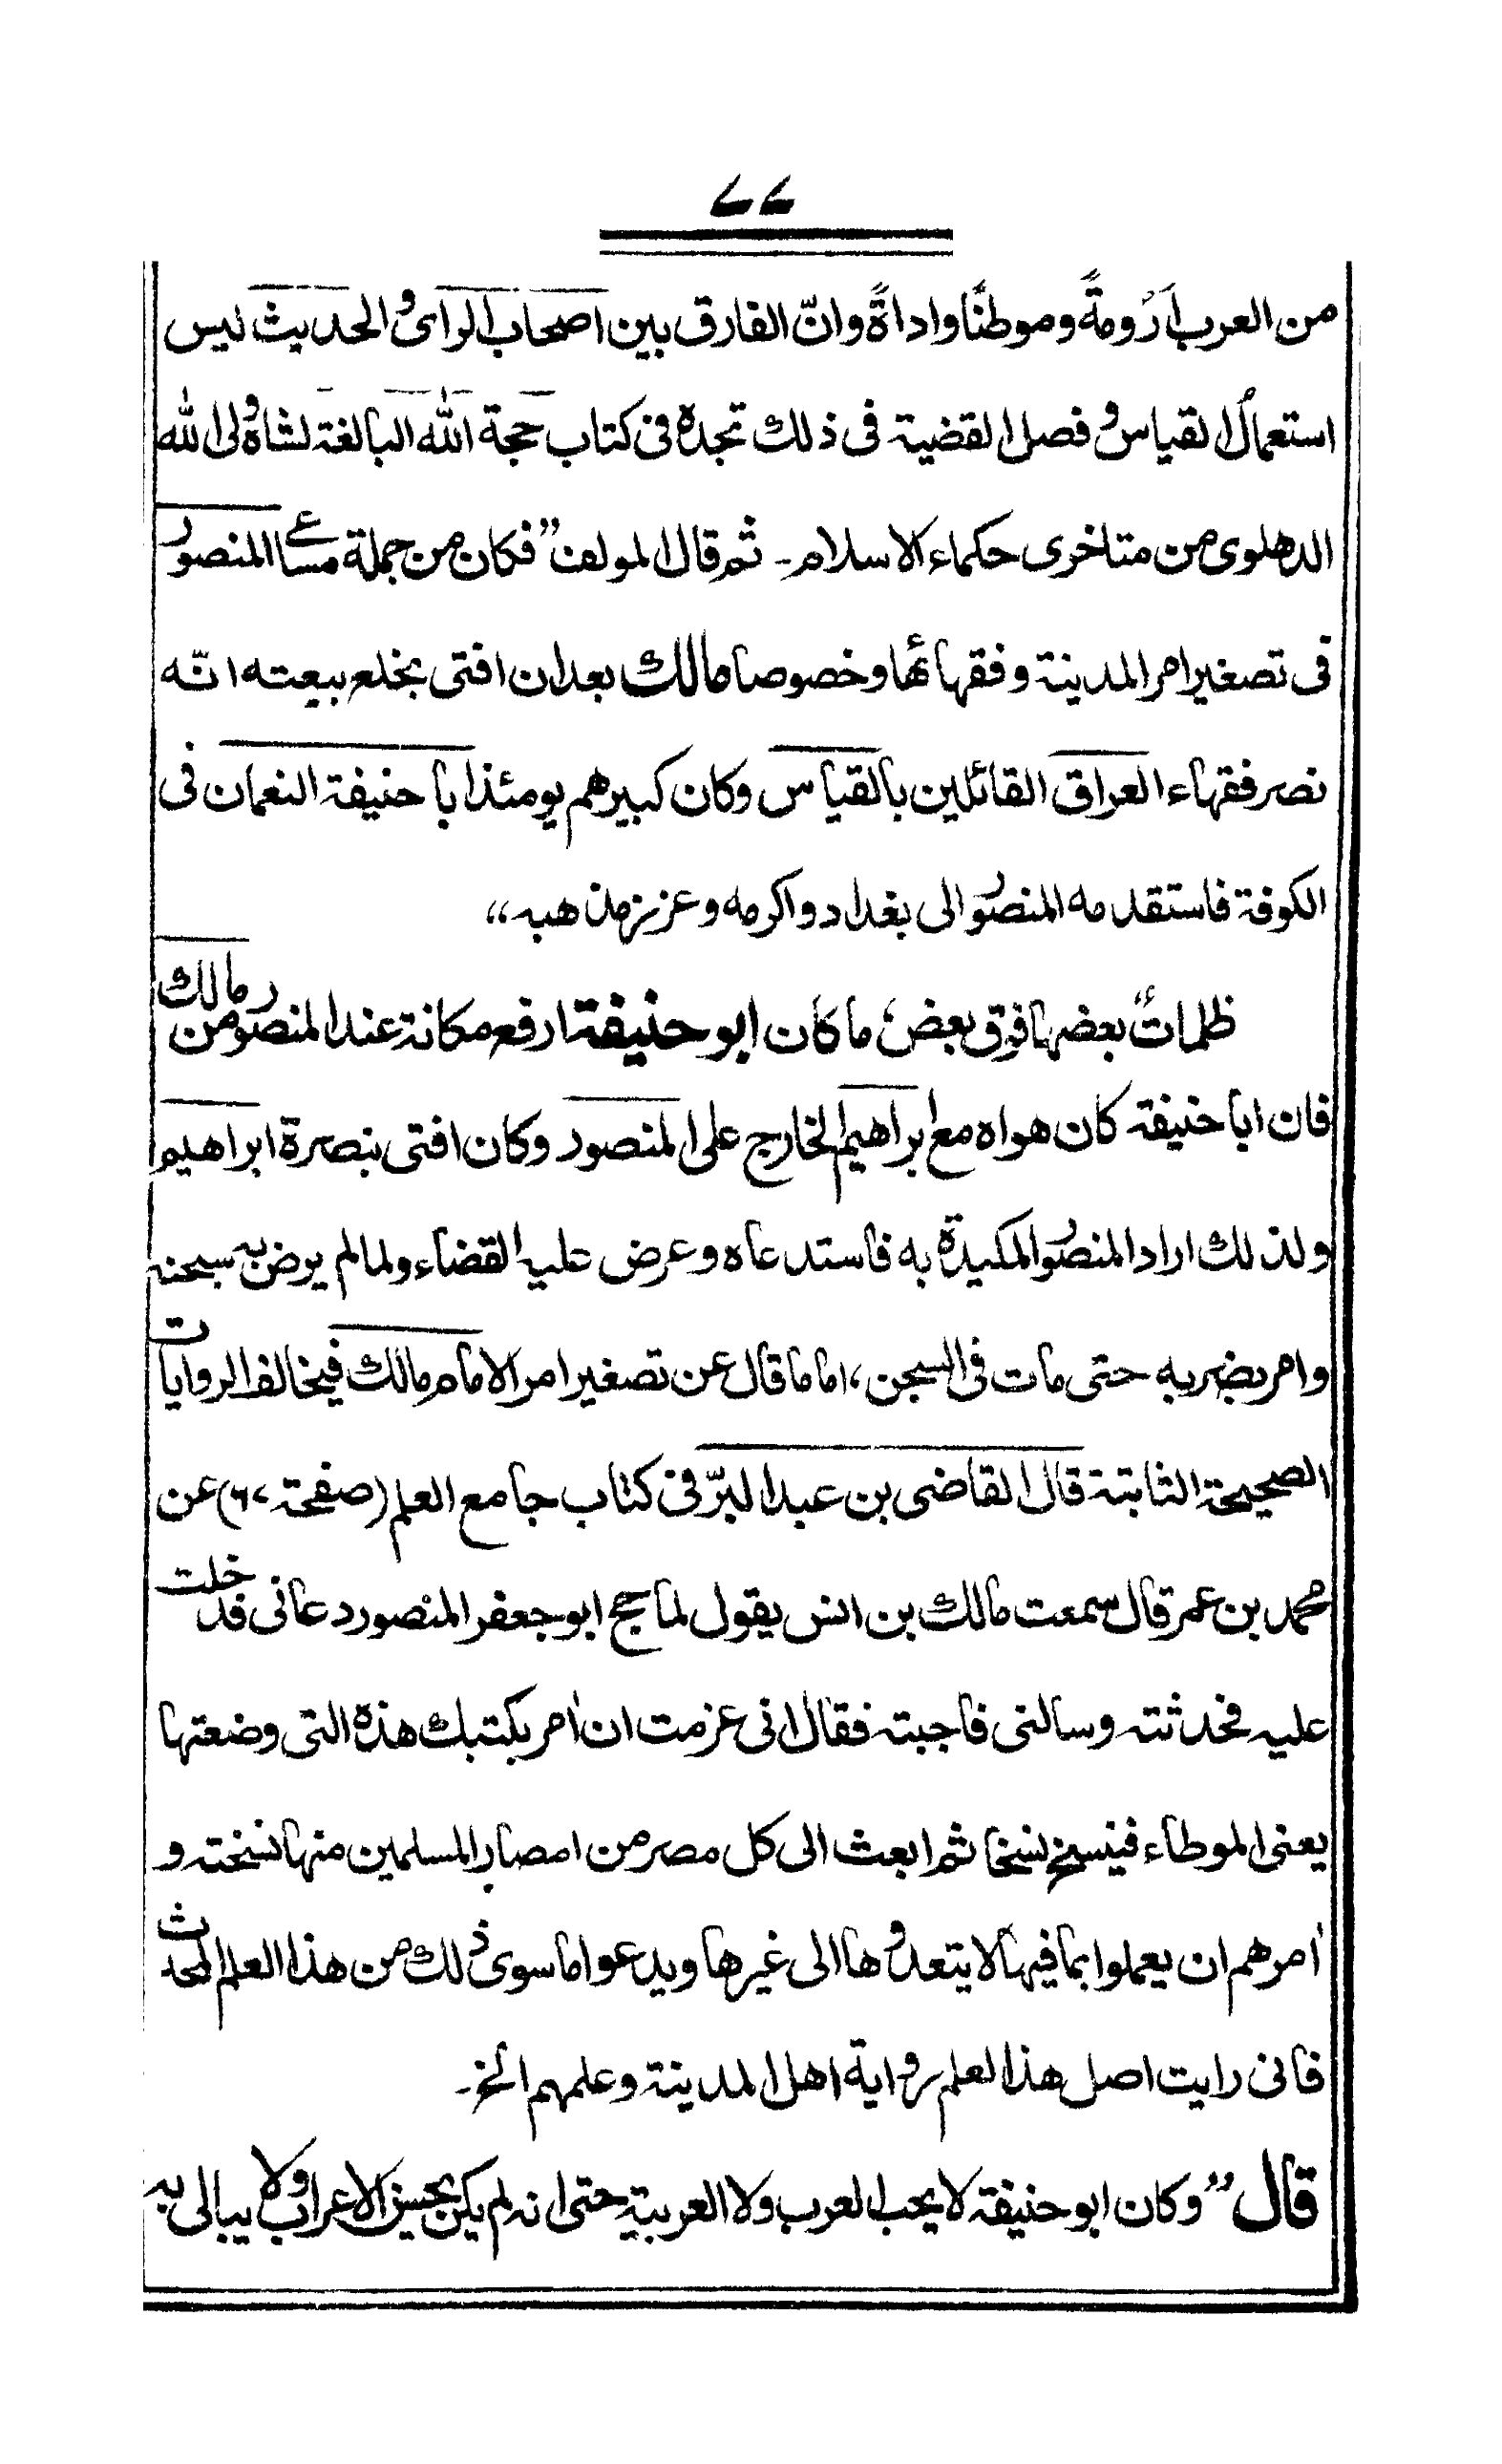 ٧٧
من العرب اَرُومةً وموطنًا واداةً وانّ الفارق بين اصحاب الرای والحديث ليس
استعمال القياس وفصل القضية فی ذلك تجده فی كتاب حجة الله البالغة لشاه ولی الله
الدهلوی من متاخری حكماء الاسلام۔ ثم قال المولف ”فكان من جملة مساعے المنصور
فی تصغير امر المدينة وفقهائها وخصوصا مالك بعد ان افتی بخلع بيعته انّه
نصر فقهاء العراق القائلين بالقياس وكان كبيرهم يومئذ ابا حنيفة النعمان فی
الكوفة فاستقدمه المنصور الی بغداد واكرمه وعزز مذهبه“
ظلماتٌ بعضها فوق بعض، ما كان ابو حنيفة ارفع مكانة عند المنصور من مالك
فان ابا حنيفة كان هواه مع ابراهيم الخارج علی المنصور وكان افتی بنصرة ابراهيم
ولذلك اراد المنصور المكيدة به فاستدعاه وعرض عليه القضاء ولما لم يرض به سجنه
وامر بضربه حتی مات فی السجن، اما ما قال عن تصغير امر الامام مالك فيخالف الروايات
الصحيحة الثابتة قال القاضی بن عبد البرّ فی كتاب جامع العلم (صفحة ٦٧) عن
محمد بن عمر قال سمعت مالك بن انس يقول لما حج ابو جعفر المنصور دعانی فدخلت
عليه فحدثته وسالنی فاجبته فقال انی عزمت ان اٰمر بكتبك هذه التی وضعتها
يعنی الموطاء فينسخ نسخا ثم ابعث الی كل مصر من امصار المسلمين منها نسخته و
اٰمرهم ان يعملوا بما فيها لا يتعدوها الی غيرها ويدعوا ما سوی ذلك من هذا العلم المحدث
فانی رايت اصل هذا العلم رواية اهل المدينة وعلمهم الخ۔
قال ”وكان ابو حنيفة لا يحب العرب ولا العربية حتی انه لم يكن يحسن الاعراب ولا يبالی به